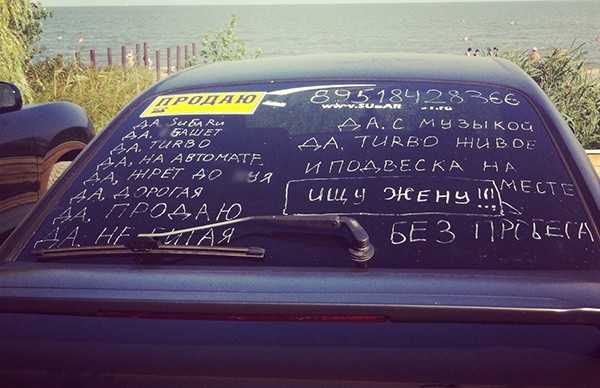 ПРОДАЮ
89518428366
www.SUBAR
.ru
ДА, SUBARU
ДА, БАШЕТ
ДА, TURBO
ДА, НА АВТОМАТЕ
ДА, ЖРЁТ ДО
ДА, ДОРОГАЯ
ДА, ПРОДАЮ
ДА, НЕ БИТАЯ
ДА, С МУЗЫКОЙ
ДА, TURBO ЖИВОЕ
И ПОДВЕСКА НА
МЕСТЕ
ИЩУ ЖЕНУ!!!
БЕЗ ПРОБЕГА